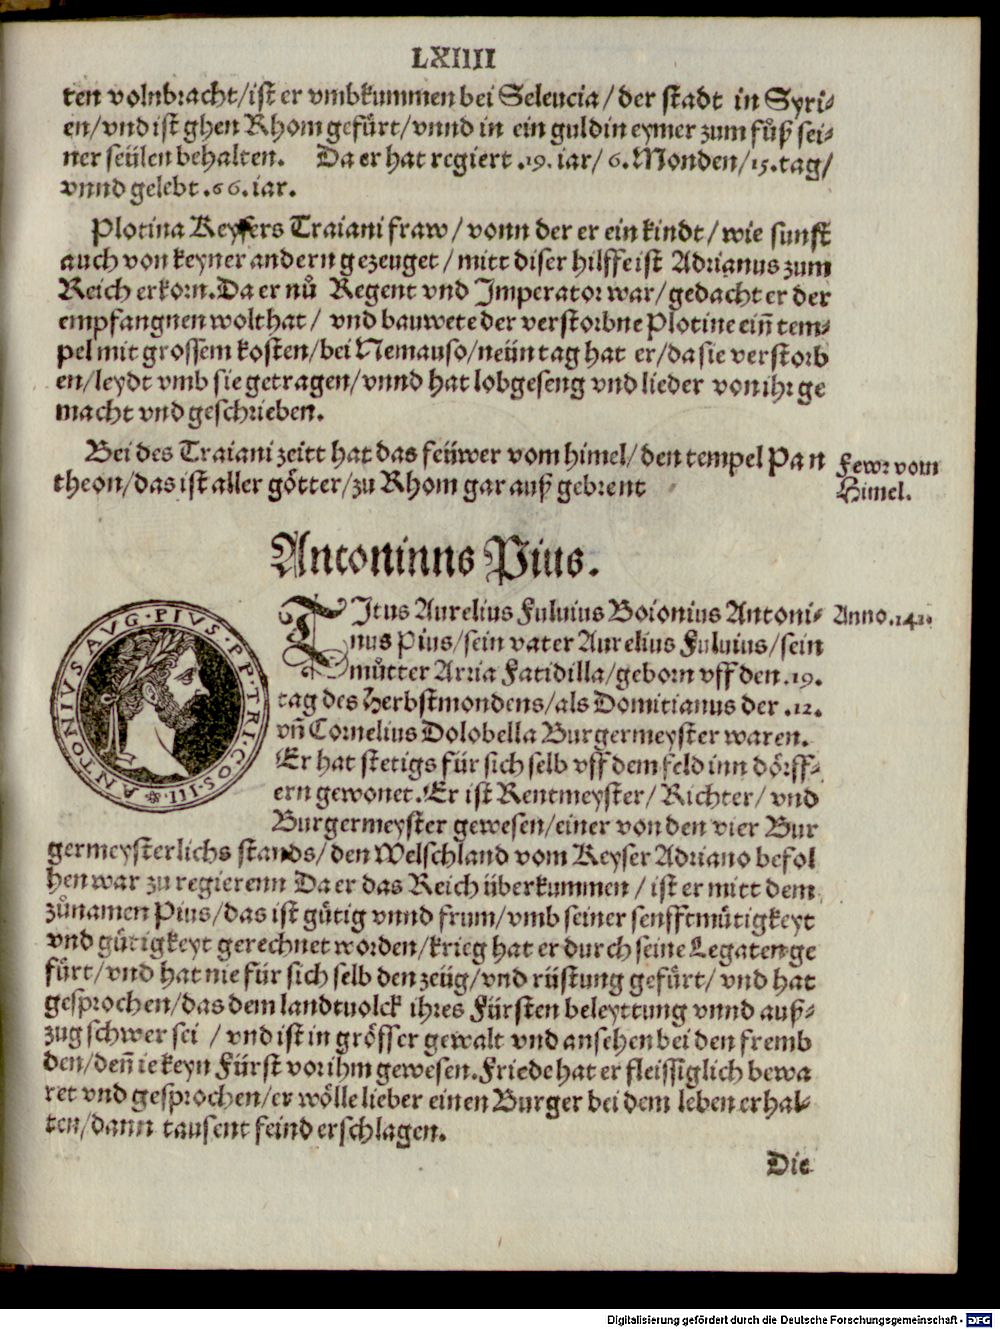 LXIIII
ten volnbracht/ist er vmbkummen bei Seleucia/der stadt in Syri-
en/vnd ist ghen Rhom gefürt/vnnd in ein guldin eymer zum fůß sei-
ner seülen behalten. Da er hat regiert .19. iar/6. Monden/15. tag/
vnnd gelebt .66. iar.
Plotina Keysers Traiani fraw/vonn der er ein kindt/wie sunst
auch von keyner andern gezeuget/mitt diser hilffe ist Adrianus zum
Reich erkorn. Da er nů Regent vnd Imperator war/gedacht er der
empfangnen wolthat/vnd bauwete der verstorbne Plotine eiñ tem-
pel mit grossem kosten/bei Nemauso/neün tag hat er/da sie verstorb
en/leydt vmb sie getragen/vnnd hat lobgeseng vnd lieder von ihr ge
macht vnd geschrieben.
Bei des Traiani zeitt hat das feüwer vom himel/den tempel Pan
theon/das ist aller götter/zu Rhom gar auß gebrent
Fewr vom
Himel.
Antoninns Pius.
ANTONIVS AVG·PIVS·P·P·TRI·COS·III·
TItus Aurelius Fuluius Boionius Antoni-
nus Pius/sein vater Aurelius Fuluius/sein
můtter Arria Fatidilla/geborn vff den .19.
tag des Herbstmondens/als Domitianus der .12.
vñ Cornelius Dolobella Burgermeyster waren.
Er hat stetigs für sich selb vff dem feld inn dörff-
ern gewonet. Er ist Rentmeyster/Richter/vnd
Burgermeyster gewesen/einer von den vier Bur
germeysterlichs stands/den Welschland vom Keyser Adriano befol
hen war zu regierenn Da er das Reich überkummen/ist er mitt dem
zůnamen Pius/das ist gütig vnnd frum/vmb seiner senfftmütigkeyt
vnd gütigkeyt gerechnet worden/krieg hat er durch seine Legaten ge
fürt/vnd hat nie für sich selb den zeüg/vnd rüstung gefürt/vnd hat
gesprochen/das dem landtuolck ihres Fürsten beleyttung vnnd auß-
zug schwer sei/vnd ist in grösser gewalt vnd ansehen bei den fremb
den/deñ ie keyn Fürst vor ihm gewesen. Friede hat er fleissiglich bewa
ret vnd gesprochen/er wölle lieber einen Burger bei dem leben erhal-
ten/dann tausent feind erschlagen.
Anno.141.
Die
Digitalisierung gefördert durch die Deutsche Forschungsgemeinschaft - DFG